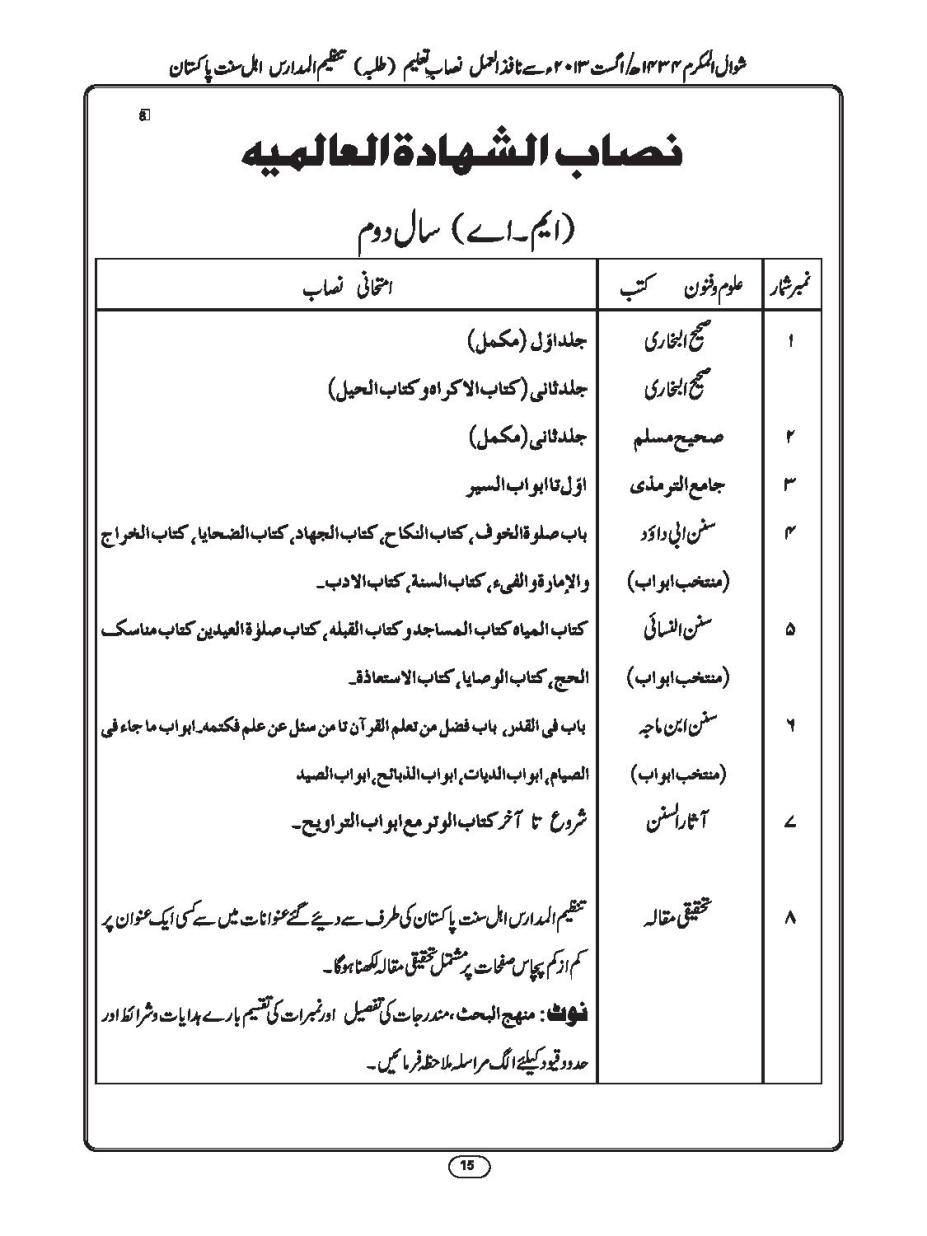 شوال المکرم ۱۴۳۴ھ/اگست ۲۰۱۳ء سے نافذ العمل نصاب تعلیم (طلبہ) تنظیم المدارس اہل سنت پاکستان
8
نصاب الشهادة العالمیه
(ایم۔اے) سال دوم
نمبر شمار علوم و فنون کتب امتحانی نصاب
۱ صحیح البخاری جلد اوّل (مکمل)
صحیح البخاری جلد ثانی (کتاب الاکراہ و کتاب الحیل)
۲ صحیح مسلم جلد ثانی (مکمل)
۳ جامع الترمذی اوّل تا ابواب السیر
۴ سنن ابی داؤد باب صلوة الخوف، کتاب النکاح، کتاب الجهاد، کتاب الضحایا، کتاب الخراج
(منتخب ابواب) والإمارة والفیء، کتاب السنة، کتاب الادب۔
۵ سنن النسائی کتاب المیاه کتاب المساجد و کتاب القبله، کتاب صلوٰة العیدین کتاب مناسک
(منتخب ابواب) الحج، کتاب الوصایا، کتاب الاستعاذة۔
۶ سنن ابن ماجہ باب فی القدر، باب فضل من تعلم القرآن تا من سئل عن علم فکتمه۔ ابواب ما جاء فی
(منتخب ابواب) الصیام، ابواب الدیات، ابواب الذبائح، ابواب الصید
۷ آثار السنن شروع تا آخر کتاب الوتر مع ابواب التراویح۔
۸ تحقیقی مقالہ تنظیم المدارس اہل سنت پاکستان کی طرف سے دیئے گئے عنوانات میں سے کسی ایک عنوان پر
کم از کم پچاس صفحات پر مشتمل تحقیقی مقالہ لکھنا ہوگا۔
نوٹ: منهج البحث، مندرجات کی تفصیل اور نمبرات کی تقسیم بارے ہدایات و شرائط اور
حدود قیود کیلئے الگ مراسلہ ملاحظہ فرمائیں۔
15